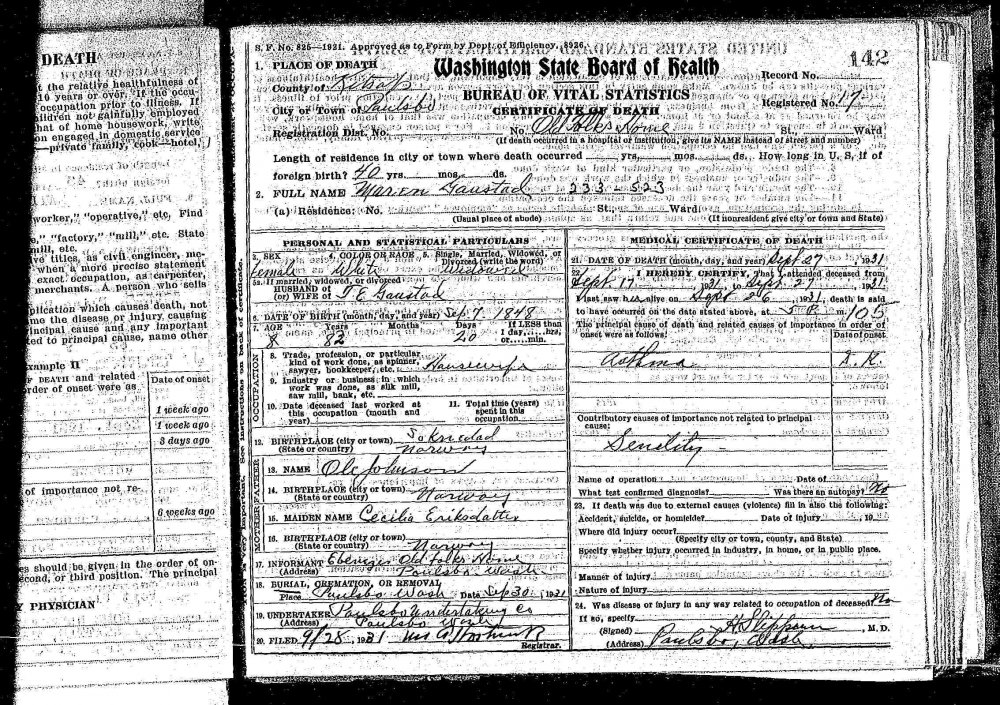 DEATH
t the relative healthfulness of
10 years or over. If the occu-
occupation prior to illness. If
ildren not gainfully employed
hat of home housework, write
on engaged in domestic service
—private family, cook—hotel,
worker," "operative," etc. Find
," "factory," "mill," etc. State
mill, etc.
ve titles, as civil engineer, me-
when a more precise statement
exact occupation, as carpenter,
merchants. A person who sells
plication which causes death, not
me the disease or injury causing
incipal cause and any important
ted to principal cause, name other
xample II
F DEATH and related
order of onset were as
Date of onset
1 week ago
1 week ago
3 days ago
of importance not re-
6 weeks ago
es should be given in the order of on-
econd, or third position. The principal
Y PHYSICIAN
S. F. No. 825—1921. Approved as to Form by Dept. of Efficiency. 8926.
142
1. PLACE OF DEATH
Washington State Board of Health
Record No.
County of Kitsap
BUREAU OF VITAL STATISTICS
City or Town of Paulsbo
CERTIFICATE OF DEATH
Registered No. 17
Registration Dist. No. No. Old Folks Home St., Ward
(If death occurred in a hospital or institution, give its NAME instead of street and number)
Length of residence in city or town where death occurred yrs. mos. ds. How long in U. S. if of
foreign birth? 40 yrs. mos. ds.
2. FULL NAME Maren Gaustad 233-523
(a) Residence: No. St., Ward
(Usual place of abode) (If nonresident give city or town and State)
PERSONAL AND STATISTICAL PARTICULARS
3. SEX 4. COLOR OR RACE 5. Single, Married, Widowed, or
Divorced (write the word)
female White Widowed
5a. If married, widowed, or divorced
HUSBAND of
(or) WIFE of T E Gaustad
6. DATE OF BIRTH (month, day, and year) Sep. 7. 1848
7. AGE Years Months Days If LESS than
1 day, hrs.
82 20 or min.
OCCUPATION
8. Trade, profession, or particular
kind of work done, as spinner,
sawyer, bookkeeper, etc. Housewife
9. Industry or business in which
work was done, as silk mill,
saw mill, bank, etc.
10. Date deceased last worked at
this occupation (month and
year)
11. Total time (years)
spent in this
occupation
12. BIRTHPLACE (city or town)
(State or country) Norway
FATHER
13. NAME Ole Johnson
14. BIRTHPLACE (city or town)
(State or country) Norway
MOTHER
15. MAIDEN NAME Cecilia Eriksdatter
16. BIRTHPLACE (city or town)
(State or country) Norway
17. INFORMANT Ebenezer Old Folks Home
(Address) Paulsbo Wash
18. BURIAL, CREMATION, OR REMOVAL
Place Paulsbo Wash Date Sep 30, 1931
19. UNDERTAKER Paulsbo Undertaking Co
(Address) Paulsbo Wash
20. FILED 9/28, 1931
Registrar.
MEDICAL CERTIFICATE OF DEATH
21. DATE OF DEATH (month, day, and year) Sept 27 1931
22. I HEREBY CERTIFY, That I attended deceased from
Sept 17, 1931, to Sept 27, 1931
I last saw her alive on Sept 26, 1931, death is said
to have occurred on the date stated above, at m. 105
The principal cause of death and related causes of importance in order of
onset were as follows:
Date of onset
Asthma D. K.
Contributory causes of importance not related to principal
cause:
Senility
Name of operation Date of
What test confirmed diagnosis? Was there an autopsy? No
23. If death was due to external causes (violence) fill in also the following:
Accident, suicide, or homicide? Date of injury , 19
Where did injury occur?
(Specify city or town, county, and State)
Specify whether injury occurred in industry, in home, or in public place.
Manner of injury
Nature of injury
24. Was disease or injury in any way related to occupation of deceased? No
If so, specify
(Signed) , M. D.
(Address) Paulsbo, Wash.